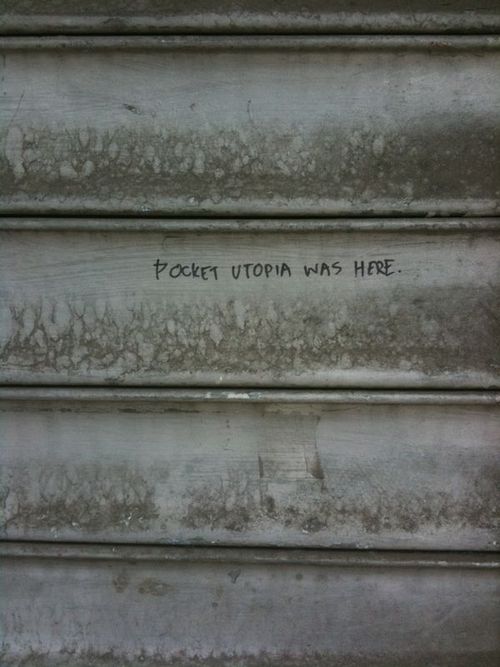 POCKET UTOPIA WAS HERE.